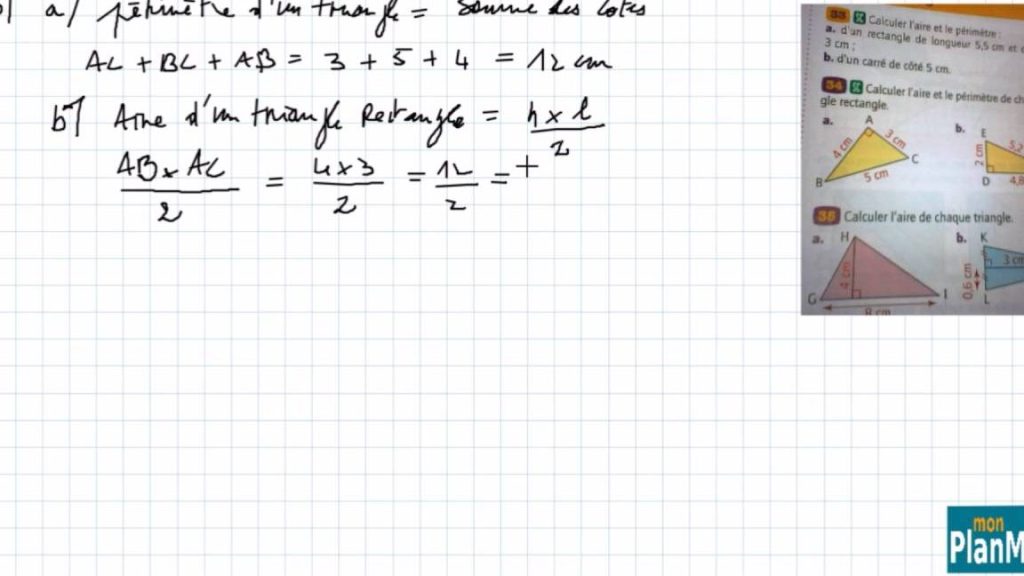 a/ périmètre d'un triangle = somme des cotés
AC + BC + AB = 3 + 5 + 4 = 12 cm
b/ Aire d'un triangle Rectangle = h x l
2
AB x AC = 4 x 3 = 12 = +
2 2 2
33 Calculer l'aire et le périmètre :
a. d'un rectangle de longueur 5,5 cm et
3 cm ;
b. d'un carré de côté 5 cm.
34 Calculer l'aire et le périmètre de
gle rectangle.
a. A b. E
4 cm 3 cm 2 cm 5,2
B 5 cm C D 4,8
35 Calculer l'aire de chaque triangle.
a. H b. K
4 cm 0,6 cm 3 cm
G I L
8 cm
mon
PlanM